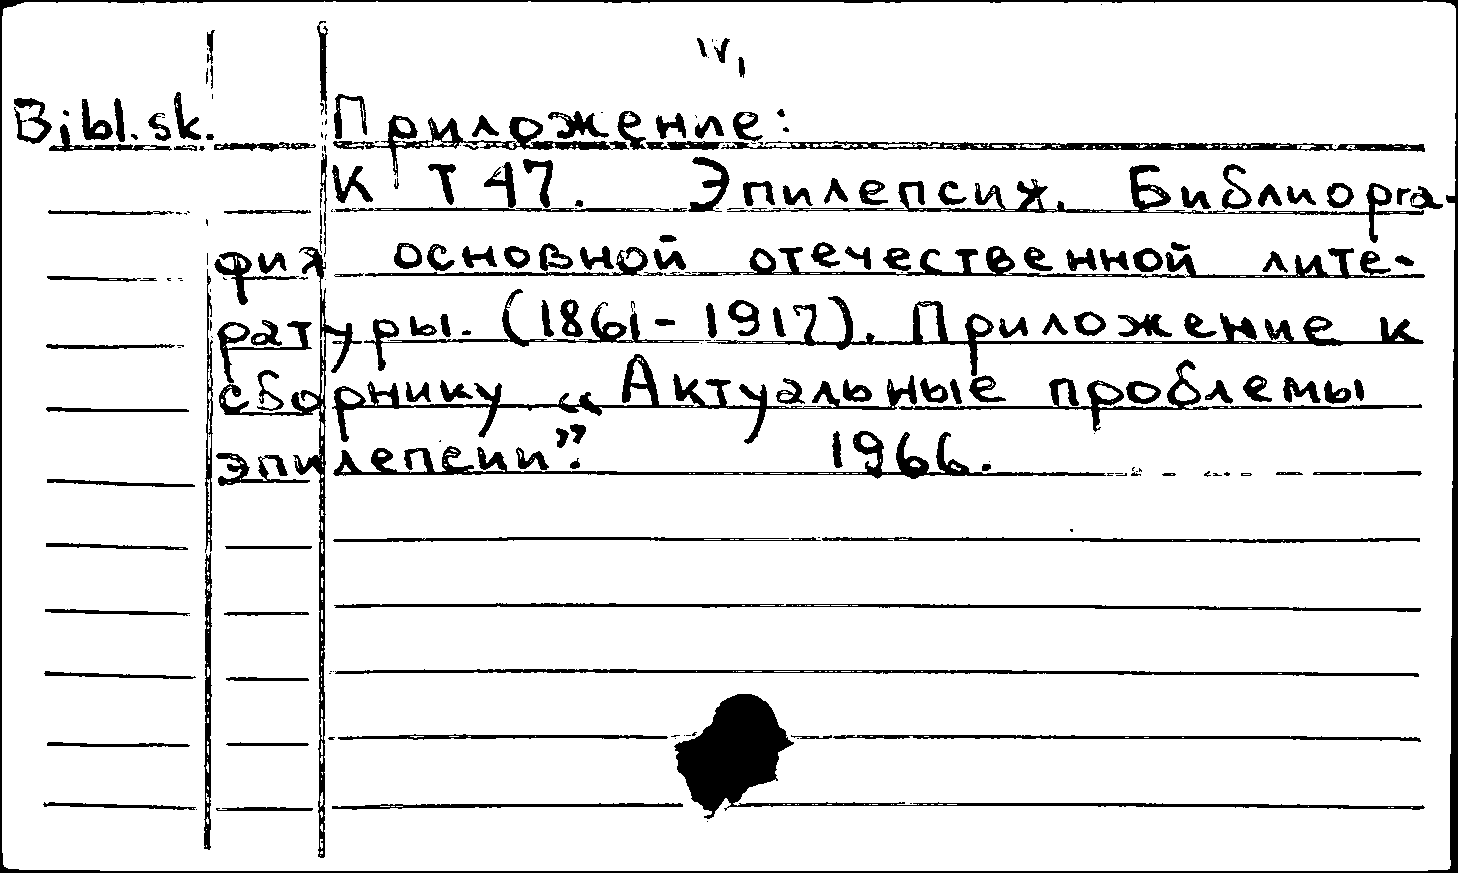 IV,
Bibl. sk. Приложение:
К Т 47. Эпилепсия. Библиогра-
фия основной отечественной лите-
ратуры. (1861-1917). Приложение к
сборнику „Актуальные проблемы
эпилепсии”. 1966.